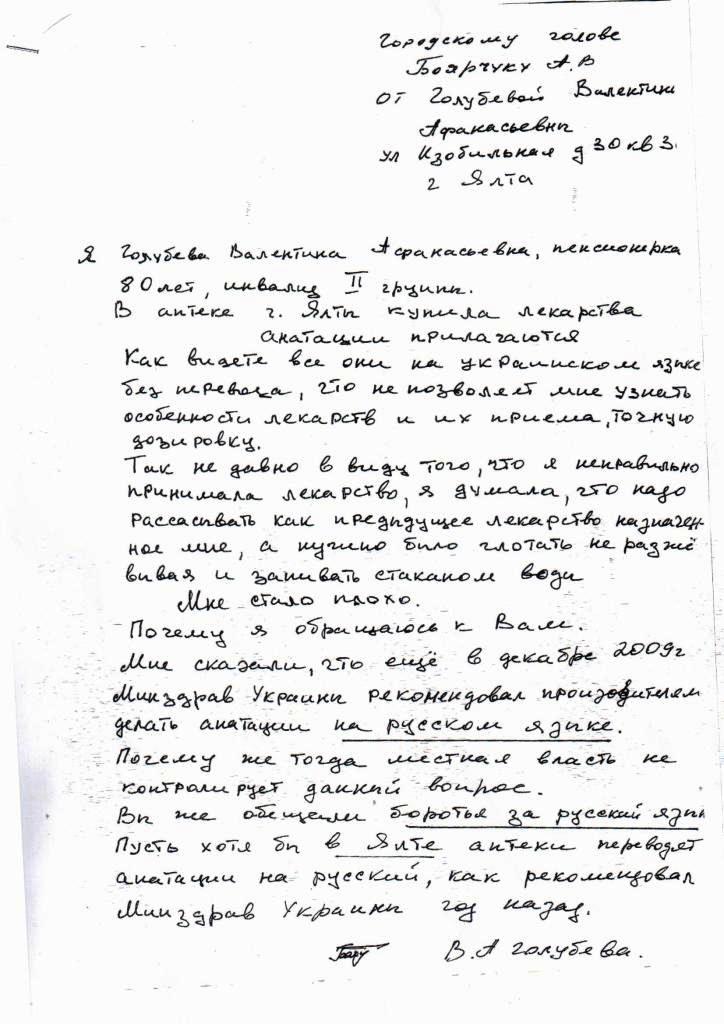 Городскому голове
Боярчуку А.В
от Голубевой Валентины
Афанасьевны
ул Изобильная д 30 кв 3.
г Ялта
Я Голубева Валентина Афанасьевна, пенсионерка
80 лет, инвалид II группы.
В аптеке г. Ялты купила лекарства
анатации прилагаются
Как видете все они на украинском языке
без перевода, что не позволяет мне узнать
особенности лекарств и их приема, точную
дозировку.
Так не давно в виду того, что я неправильно
принимала лекарство, я думала, что надо
рассасывать как предыдущее лекарство назначен
ное мне, а нужно было глотать не разжё
вывая и запивать стаканом воды
Мне стало плохо.
Почему я обращаюсь к Вам.
Мне сказали, что ещё в декабре 2009г
Минздрав Украины рекомендовал производителям
делать анатации на русском языке.
Почему же тогда местная власть не
контролирует данный вопрос.
Вы же обещали боротья за русский язык
Пусть хотя бы в Ялте аптеки переводят
анатации на русский, как рекомендовал
Минздрав Украины год назад.
В.А Голубева.